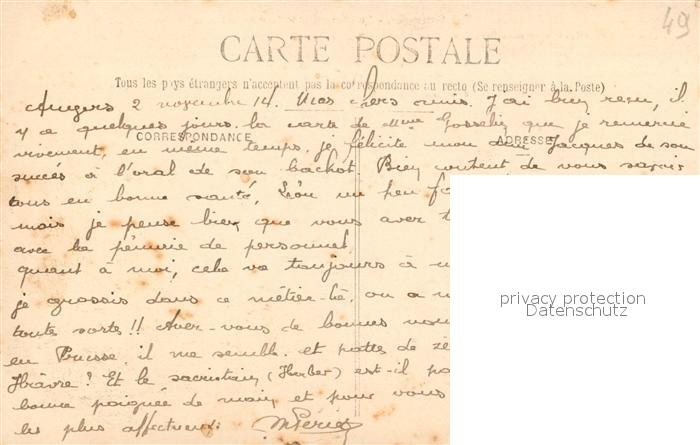 49
CARTE POSTALE
Tous les pays étrangers n'acceptent pas la correspondance au recto (Se renseigner à la Poste)
Angers 2 novembre 14. Mes chers amis. J'ai bien reçu, il
y a quelques jours la carte de Mme que je remercie
CORRESPONDANCE
ADRESSE
vivement, en même temps je félicite mon ami Jacques de son
succès à l'oral de son bachot. Bien content de vous savoir
tous en bonne santé, Léon un peu
mais je pense bien que vous avez
avec la pénurie de personnel
quant à moi, cela va toujours à
je grossis dans ce métier-là. on a
toute sorte!! Avez-vous de bonnes
en Prusse. il me semble. et pattes de
Hâvre? Et le sacristain (Herber) est-il
bonne poignée de main et pour vous
les plus affectueux.
privacy protection
Datenschutz